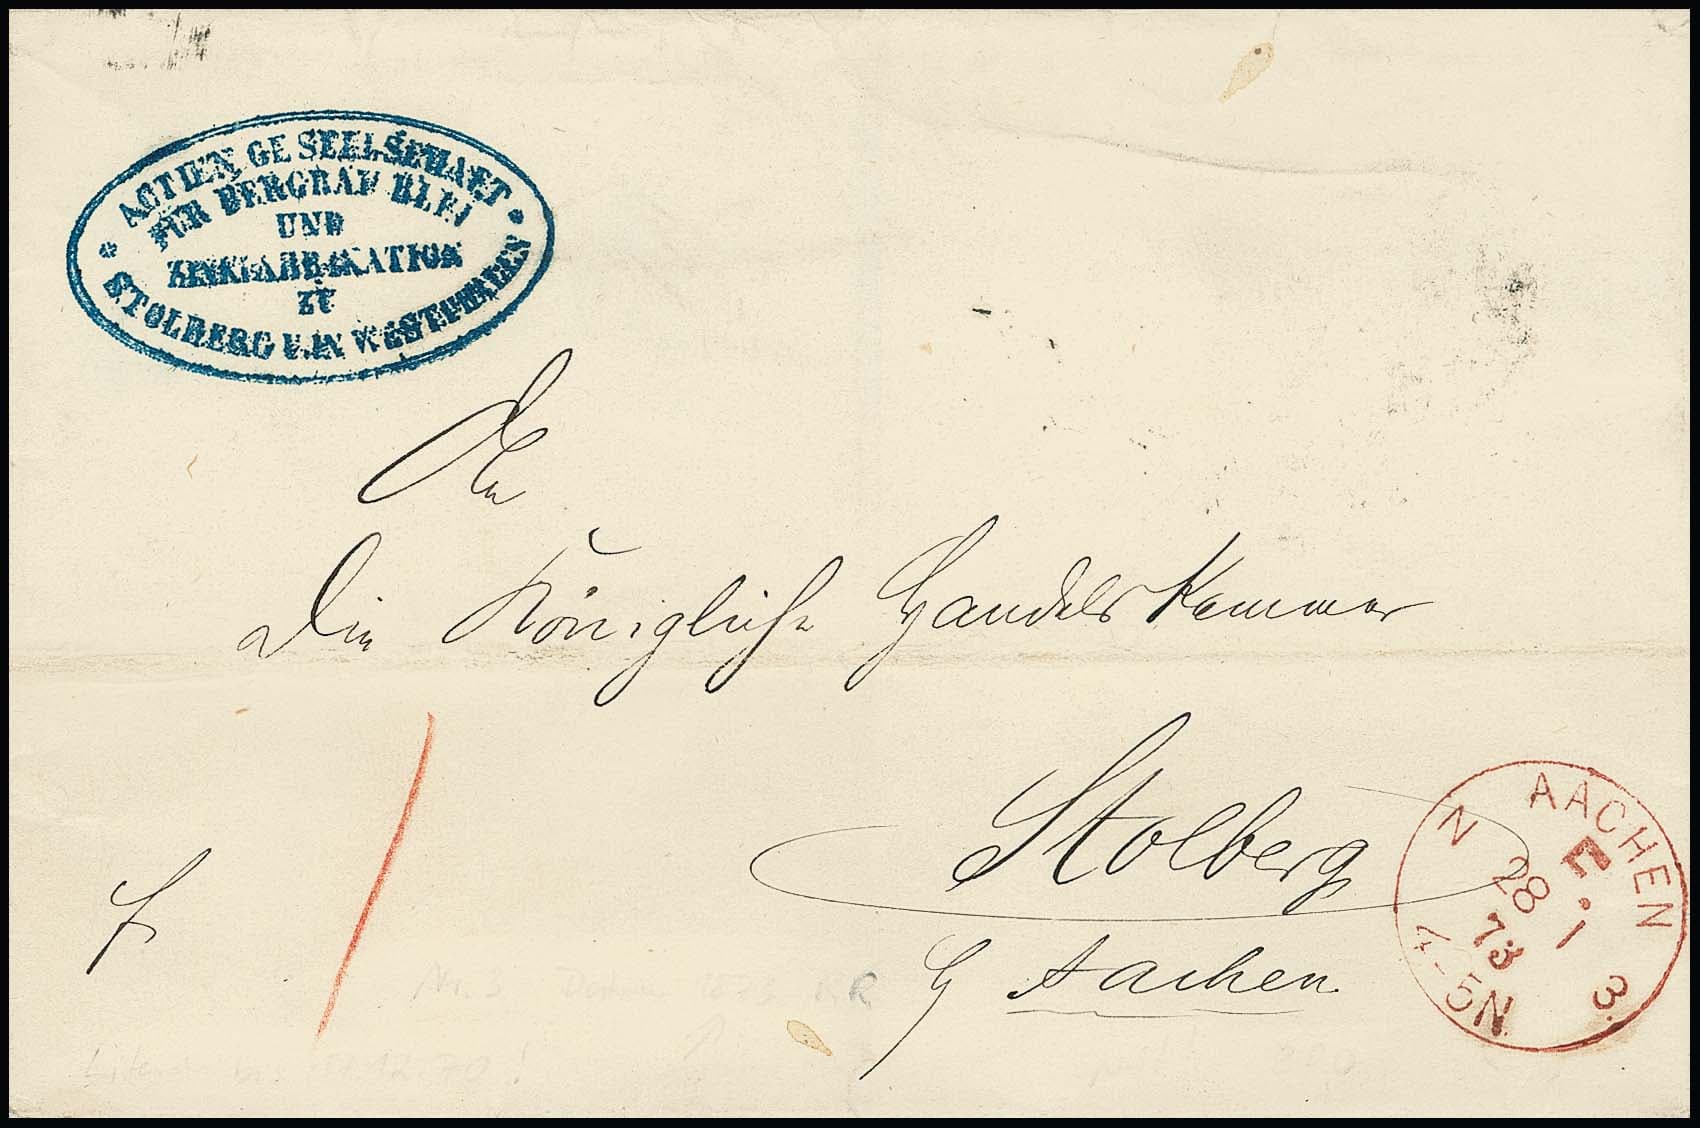 ACTIEN GESELLSCHAFT
FÜR BERGBAU BLEI
UND
ZINKFABRIKATION
ZU
STOLBERG U. IN WESTPHALEN
An
Die Königliche Handels Kammer
Stolberg
Aachen
AACHEN
N
28 1
73
4-5N
3.
Nr. 3